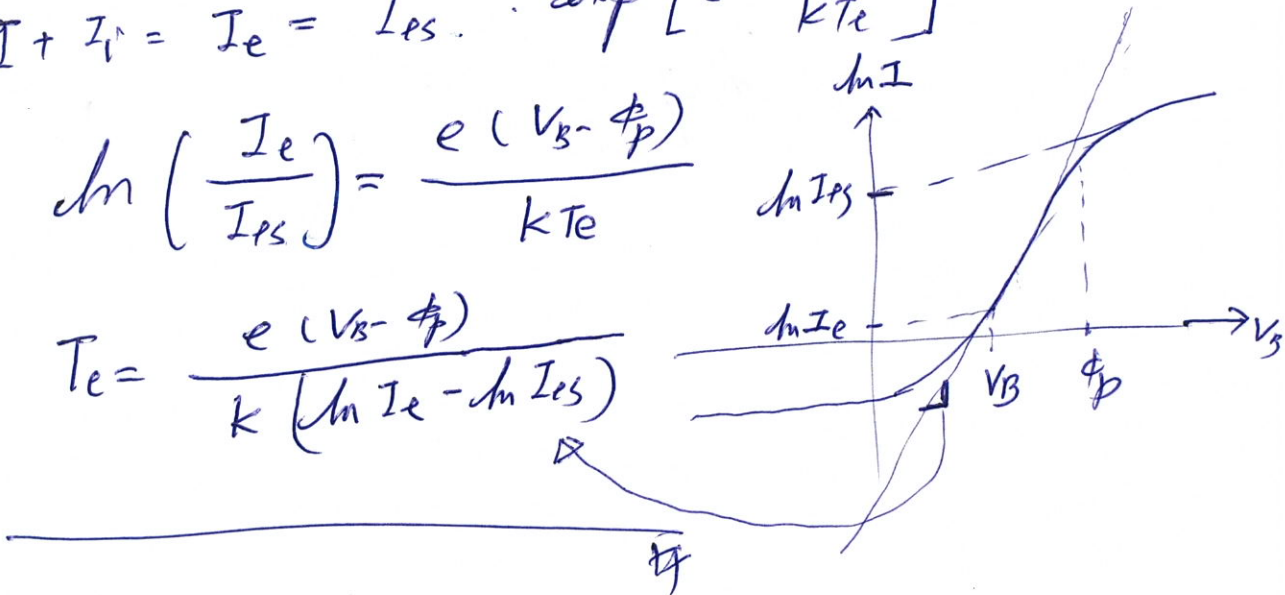 I + Ii = Ie = Ies · exp [ - kTe ]
ln ( Ie / Ies ) = e ( VB - ϕp ) / kTe
Te = e ( VB - ϕp ) / k ( ln Ie - ln Ies )
ln I
ln Ies
ln Ie
VB
VB
ϕp